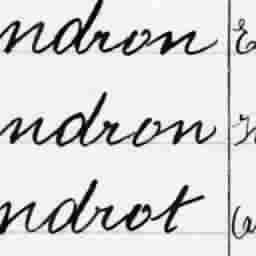 ndron
ndron
ndrot